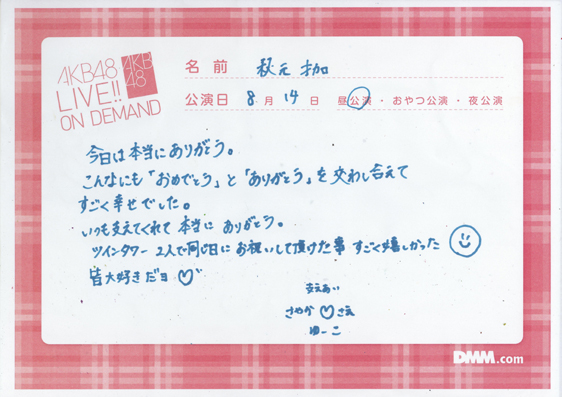 AKB48
LIVE!!
ON DEMAND
AKB
48
名前 秋元才加
公演日 8月14日 昼公演・おやつ公演・夜公演
今日は本当にありがとう。
こんなにも「おめでとう」と「ありがとう」を交わし合えて
すごく幸せでした。
いつも支えてくれて本当にありがとう。
ツインタワー 2人で同じ日にお祝いして頂けた事 すごく嬉しかった
皆大好きだヨ♡
支えあい
さやか♡さえ
ゆーこ
DMM.com